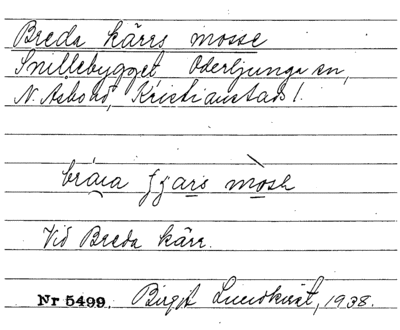 Breda kärrs mosse
Snillebygget Oderljunga sn,
N. Åsbo hd, Kristianstads l.
Vid Breda kärr.
Nr 5499. Birgit Lundkvist, 1938.